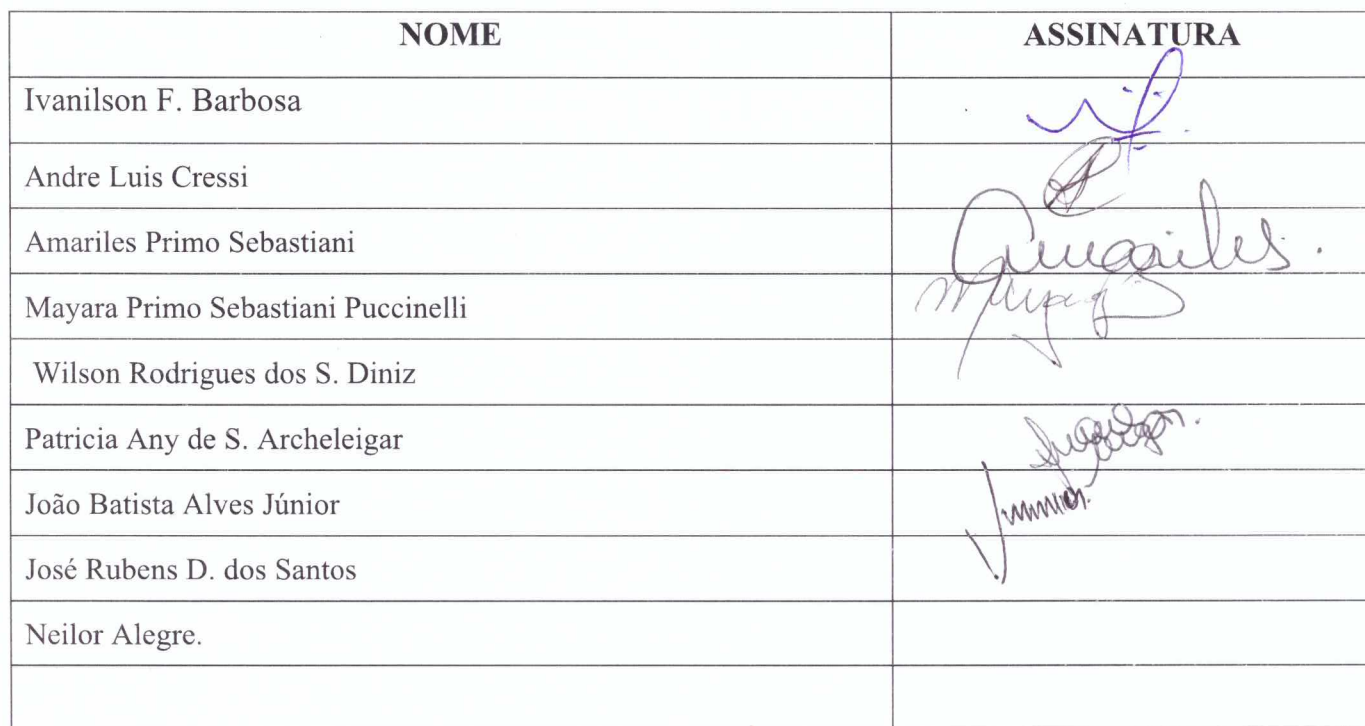 NOME ASSINATURA
Ivanilson F. Barbosa
Andre Luis Cressi
Amariles Primo Sebastiani Amariles.
Mayara Primo Sebastiani Puccinelli
Wilson Rodrigues dos S. Diniz
Patricia Any de S. Archeleigar
João Batista Alves Júnior
José Rubens D. dos Santos
Neilor Alegre.